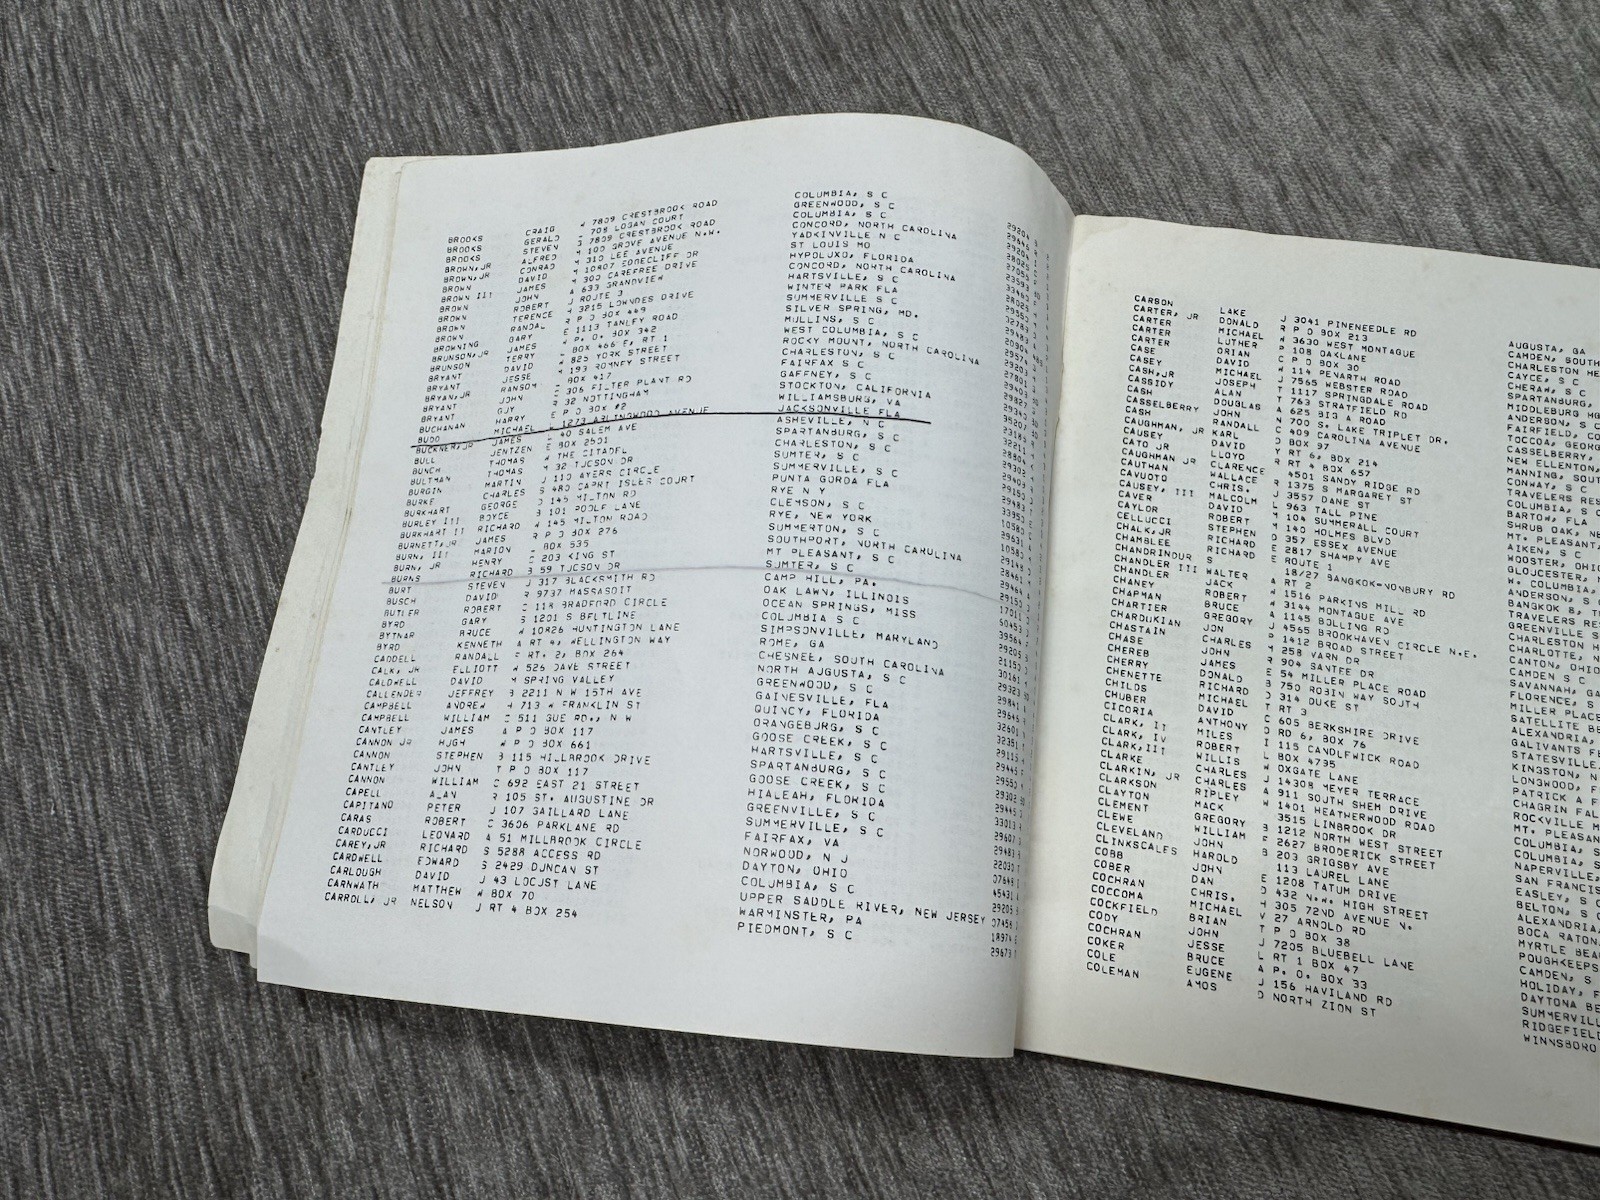 BROOKS CRAIG W 7809 CRESTBROOK ROAD COLUMBIA, S C 29204
BROOKS GERALD 709 LOGAN COURT GREENWOOD, S C 29646
BROOKS STEVEN G 7809 CRESTBROOK ROAD COLUMBIA, S C 29204
BROWN,JR ALFRED H 100 GROVE AVENUE N.W. CONCORD, NORTH CAROLINA 28025
BROWN,JR CONRAD H 310 LEE AVENUE YADKINVILLE N C 27055
BROWN DAVID H 10807 EDGECLIFF DR ST LOUIS MO
BROWN III JAMES H 300 CAREFREE DRIVE HYPOLUXO, FLORIDA
BROWN JOHN A 633 GRANDVIEW CONCORD, NORTH CAROLINA 28025
BROWN ROBERT J ROUTE 3 HARTSVILLE, S C 29550
BROWN TERENCE J 3215 LOWNDES DRIVE WINTER PARK FLA 32789
BROWN RANDAL R P O BOX 449 SUMMERVILLE S C 29483
BROWN GARY E 1113 TANLEY ROAD SILVER SPRING, MD. 20904
BROWNING JAMES H P. O. BOX 342 MULLINS, S C 29574
BRUNSON,JR TERRY BOX 466 E, RT 1 WEST COLUMBIA, S C
BRUNSON DAVID H 825 YORK STREET ROCKY MOUNT, NORTH CAROLINA 27801
BRYANT JESSE H 193 ROMNEY STREET CHARLESTON, S C 29403
BRYAN,JR RANSOM BOX 417 FAIRFAX S C 29827
BRYANT JOHN C 306 FILTER PLANT RD GAFFNEY, S C 29340
BRYANT GUY C 32 NOTTINGHAM STOCKTON, CALIFORNIA
BUCHANAN HARRY E P O BOX #2 WILLIAMSBURG, VA 23185
BUDD MICHAEL E 1273 ARLINGWOOD AVENUE JACKSONVILLE FLA 32211
BUCKNER,JR JAMES C 40 SALEM AVE ASHEVILLE, N C 28804
BULL JENTZEN E BOX 2501 SPARTANBURG, S C 29302
BUNCH THOMAS W THE CITADEL CHARLESTON, S C 29409
BULTMAN THOMAS M 32 TUCSON DR SUMTER, S C 29150
BURGIN MARTIN J 110 AYERS CIRCLE SUMMERVILLE, S C 29483
BURKE CHARLES S 480 CAPRI ISLES COURT PUNTA GORDA FLA 33950
BURKHART GEORGE D 145 MILTON RD RYE N Y 10580
BURLEY III BOYCE B 101 POOLE LANE CLEMSON, S C 29631
BURKHART II RICHARD W 145 MILTON ROAD RYE, NEW YORK 10580
BURNETT,JR JAMES R P O BOX 276 SUMMERTON, S C 29148
BURN, III MARION BOX 535 SOUTHPORT, NORTH CAROLINA 28461
BURN, JR HENRY C 203 KING ST MT PLEASANT, S C 29464
BURNS RICHARD B 59 TUCSON DR SUMTER, S C 29150
BURT STEVEN J 317 BLACKSMITH RD CAMP HILL, PA. 17011
BUSCH DAVID R 9737 MASSASOIT OAK LAWN, ILLINOIS 60453
BUTLER ROBERT C 118 BRADFORD CIRCLE OCEAN SPRINGS, MISS 39564
BYRD GARY S 1201 S BELTLINE COLUMBIA S C 29205
BYTNAR BRUCE W 10826 HUNTINGTON LANE SIMPSONVILLE, MARYLAND 21150
BYRD KENNETH A RT. 4, WELLINGTON WAY ROME, GA 30161
CADDELL RANDALL E RT. 2, BOX 264 CHESNEE, SOUTH CAROLINA 29323
CALK, JR ELLIOTT W 526 DAVE STREET NORTH AUGUSTA, S C 29841
CALDWELL DAVID M SPRING VALLEY GREENWOOD, S C 29646
CALLENDER JEFFREY B 2211 N W 15TH AVE GAINESVILLE, FLA 32601
CAMPBELL ANDREW H 713 W FRANKLIN ST QUINCY, FLORIDA 32351
CAMPBELL WILLIAM C 511 GUE RD., N W ORANGEBURG, S C 29115
CANTLEY JAMES A P O BOX 117 GOOSE CREEK, S C 29445
CANNON JR HUGH W P O BOX 661 HARTSVILLE, S C 29550
CANNON STEPHEN B 115 HILLBROOK DRIVE SPARTANBURG, S C 29302
CANTLEY JOHN T P O BOX 117 GOOSE CREEK, S C 29445
CANNON WILLIAM C 692 EAST 21 STREET HIALEAH, FLORIDA 33013
CAPELL ALAN R 105 ST. AUGUSTINE DR GREENVILLE, S C 29607
CAPITANO PETER J 107 GAILLARD LANE SUMMERVILLE, S C 29483
CARAS ROBERT C 3606 PARKLANE RD FAIRFAX, VA 22030
CARDUCCI LEONARD A 51 MILLBROOK CIRCLE NORWOOD, N J 07648
CAREY,JR RICHARD S 5288 ACCESS RD DAYTON, OHIO 45431
CARDWELL EDWARD S 2429 DUNCAN ST COLUMBIA, S C 29205
CARLOUGH DAVID J 43 LOCUST LANE UPPER SADDLE RIVER, NEW JERSEY 07458
CARNWATH MATTHEW W BOX 70 WARMINSTER, PA 18974
CARROLL, JR NELSON J RT 4 BOX 254 PIEDMONT, S C 29673
CARSON LAKE J 3041 PINENEEDLE RD AUGUSTA, GA
CARTER, JR DONALD R P O BOX 213 CAMDEN, SOUTH
CARTER MICHAEL W 3630 WEST MONTAGUE CHARLESTON HE
CARTER LUTHER P 108 OAKLANE CAYCE, S C
CASE ORIAN C P O BOX 30 CHERAW, S C
CASEY DAVID W 114 PENARTH ROAD SPARTANBURG,
CASH,JR MICHAEL J 7565 WEBSTER ROAD MIDDLEBURG HG
CASSIDY JOSEPH T 1117 SPRINGDALE ROAD ANDERSON, S C
CASH ALAN T 763 STRATFIELD RD FAIRFIELD, CO
CASSELBERRY DOUGLAS A 625 BIG A ROAD TOCCOA, GEORG
CASH JOHN N 700 S. LAKE TRIPLET DR. CASSELBERRY,
CAUGHMAN, JR RANDALL C 409 CAROLINA AVENUE NEW ELLENTON,
CAUSEY KARL D BOX 97 MANNING, SOUT
CATO JR DAVID Y RT 6, BOX 214 CONWAY, S C
CAUGHMAN JR LLOYD R RT 4 BOX 657 TRAVELERS RES
CAUTHAN CLARENCE 4501 SANDY RIDGE RD COLUMBIA, S C
CAVUOTO WALLACE R 1375 S MARGARET ST BARTOW, FLA
CAUSEY, III CHRIS. J 3557 DANE ST SHRUB OAK, NE
CAVER MALCOLM L 963 TALL PINE MT. PLEASANT,
CAYLOR DAVID M 104 SUMMERALL COURT AIKEN, S C
CELLUCCI ROBERT M 140 HOLMES BLVD WOOSTER, OHIO
CHALK,JR STEPHEN D 357 ESSEX AVENUE GLOUCESTER, M
CHAMBLEE RICHARD E 2817 SHAMPY AVE W. COLUMBIA,
CHANDRINOUR RICHARD E ROUTE 1 ANDERSON, S C
CHANDLER III S 18/27 BANGKOK-NONBURY RD BANGKOK 8, T
CHANDLER WALTER A RT 2 TRAVELERS RES
CHANEY JACK W 1516 PARKINS MILL RD GREENVILLE S
CHAPMAN ROBERT W 3144 MONTAGUE AVE CHARLESTON H
CHARTIER BRUCE M 1145 BOLLING RD CHARLOTTE, N
CHARDUKIAN GREGORY J 4565 BROOKHAVEN CIRCLE N.E. CANTON, OHIO
CHASTAIN JON P 1412 BROAD STREET CAMDEN S C
CHASE CHARLES M 258 VARN DR SAVANNAH, GA
CHEREB JOHN R 904 SANTEE DR FLORENCE, S
CHERRY JAMES E 54 MILLER PLACE ROAD MILLER PLACE
CHENETTE DONALD B 750 ROBIN WAY SOUTH SATELLITE BE
CHILDS RICHARD D 314 DUKE ST ALEXANDRIA,
CHUBER MICHAEL T RT 3 GALIVANTS FE
CICORIA DAVID C 605 BERKSHIRE DRIVE STATESVILLE,
CLARK, II ANTHONY D RD 6, BOX 76 KINGSTON, N
CLARK, IV MILES I 115 CANDLEWICK ROAD LONGWOOD, F
CLARK,III ROBERT L BOX 4735 PATRICK A F
CLARKE WILLIS W OXGATE LANE CHAGRIN FAL
CLARKIN, JR CHARLES J 14308 MEYER TERRACE ROCKVILLE M
CLARKSON CHARLES A 911 SOUTH SHEM DRIVE MT. PLEASAN
CLAYTON RIPLEY W 1401 HEATHERWOOD ROAD COLUMBIA, S
CLEMENT MACK 3515 LINBROOK DR COLUMBIA, S
CLEWE GREGORY B 1212 NORTH WEST STREET NAPERVILLE,
CLEVELAND WILLIAM 2627 BRODERICK STREET SAN FRANCIS
CLINKSCALES JOHN B 203 GRIGSBY AVE EASLEY, S C
COBB HAROLD 113 LAUREL LANE BELTON, S C
COBER JOHN E 1208 TATUM DRIVE ALEXANDRIA,
COCHRAN DAN D 432 N.W. HIGH STREET BOCA RATON,
COCCOMA CHRIS. H 305 72ND AVENUE N. MYRTLE BEA
COCKFIELD MICHAEL V 27 ARNOLD RD POUGHKEEPS
CODY BRIAN T P O BOX 38 CAMDEN, S
COCHRAN JOHN J 7205 BLUEBELL LANE HOLIDAY, F
COKER JESSE L RT 1 BOX 47 DAYTONA BE
COLE BRUCE A P. O. BOX 33 SUMMERVILL
COLEMAN EUGENE J 156 HAVILAND RD RIDGEFIEL
AMOS D NORTH ZION ST WINNSBORO